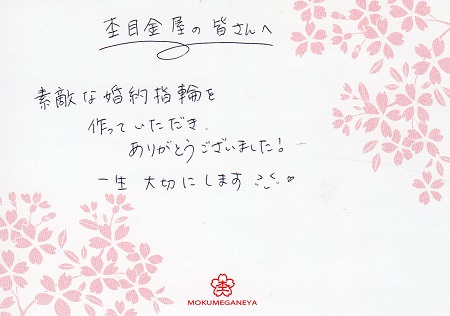 杢目金屋の皆さんへ
素敵な婚約指輪を
作っていただき、
ありがとうございました!
一生大切にします
MOKUMEGANEYA